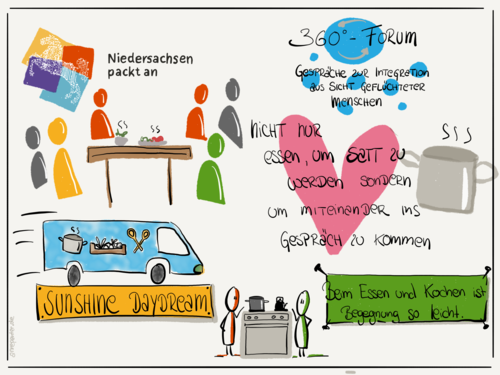 Niedersachsen
packt an
360°- FORUM
GESPRÄCHE ZUR INTEGRATION
AUS SICHT GEFLÜCHTETER
MENSCHEN
NICHT NUR
ESSEN, UM SATT ZU
WERDEN SONDERN
UM MITEINANDER INS
GESPRÄCH ZU KOMMEN
SUNSHINE DAYDREAM
Beim Essen und Kochen ist
Begegnung so leicht.